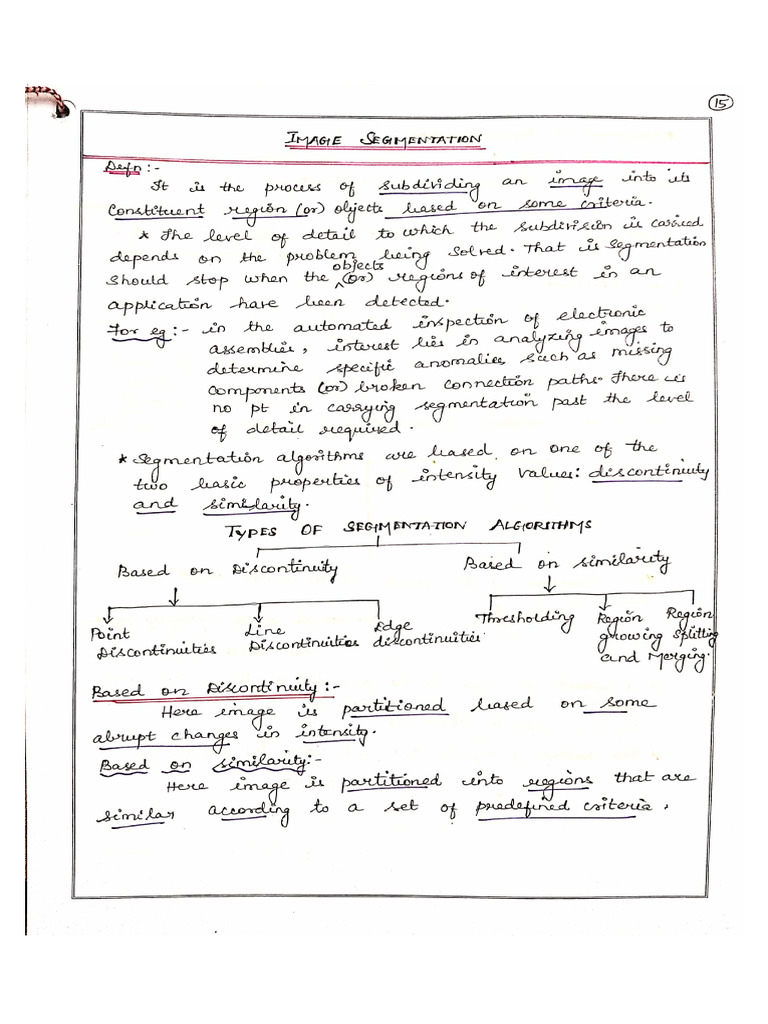 15
IMAGE SEGMENTATION
Defn:-
It is the process of subdividing an image into its
Constituent region (or) objects based on some criteria.
* The level of detail to which the subdivision is carried
depends on the problem being solved. That is segmentation
should stop when the objects (or) regions of interest in an
application have been detected.
For eg:- in the automated inspection of electronic
assemblies, interest lies in analyzing images to
determine specific anomalies such as missing
components (or) broken connection paths. There is
no pt in carrying segmentation past the level
of detail required.
* Segmentation algorithms are based on one of the
two basic properties of intensity values: discontinuity
and similarity.
TYPES OF SEGMENTATION ALGORITHMS
Based on Discontinuity Based on similarity
Point Line Edge Thresholding Region Region
Discontinuities Discontinuities discontinuities growing splitting
and Merging.
Based on Discontinuity:-
Here image is partitioned based on some
abrupt changes in intensity.
Based on similarity:-
Here image is partitioned into regions that are
similar according to a set of predefined criteria.